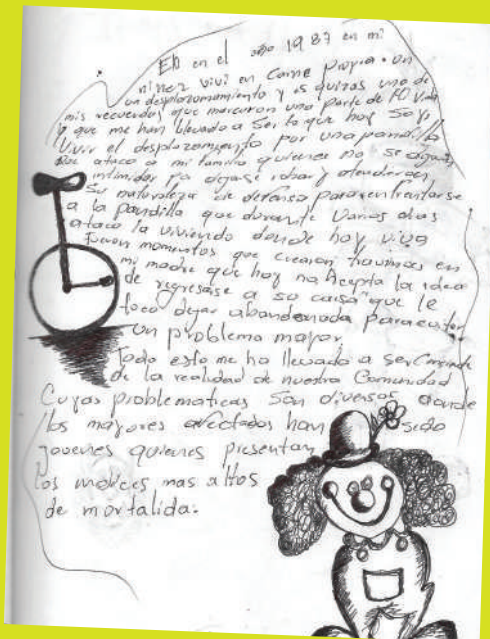 En en el año 1987 en mi
niñez viví en Carne propia. un
un desplazamamiento y es quizas uno de
mis recuerdos que marcaron una parte de mi Vida
y que me han llevado a Ser lo que hoy Soy,
Vivir el desplazamiento por una pandilla
que ataco a mi familia quienes no se
intimidar ya dejarse robar y atendieron
Su naturaleza de defensa para enfrentarse
a la pandilla que durante Varios dias
ataco la vivienda donde hoy vivo
Fueron momentos que crearon traumas en
mi madre que hoy no Acepta la idea
de regresarse a su casa que le
toco dejar abandonada para evitar
un problema mayor,
Todo esto me ha llevado a ser
de la realidad de nuestra Comunidad
Cuyas problematicas Son diversas donde
los mayores afectados han sido
jovenes quienes presentan
los indices mas altos
de mortalida.